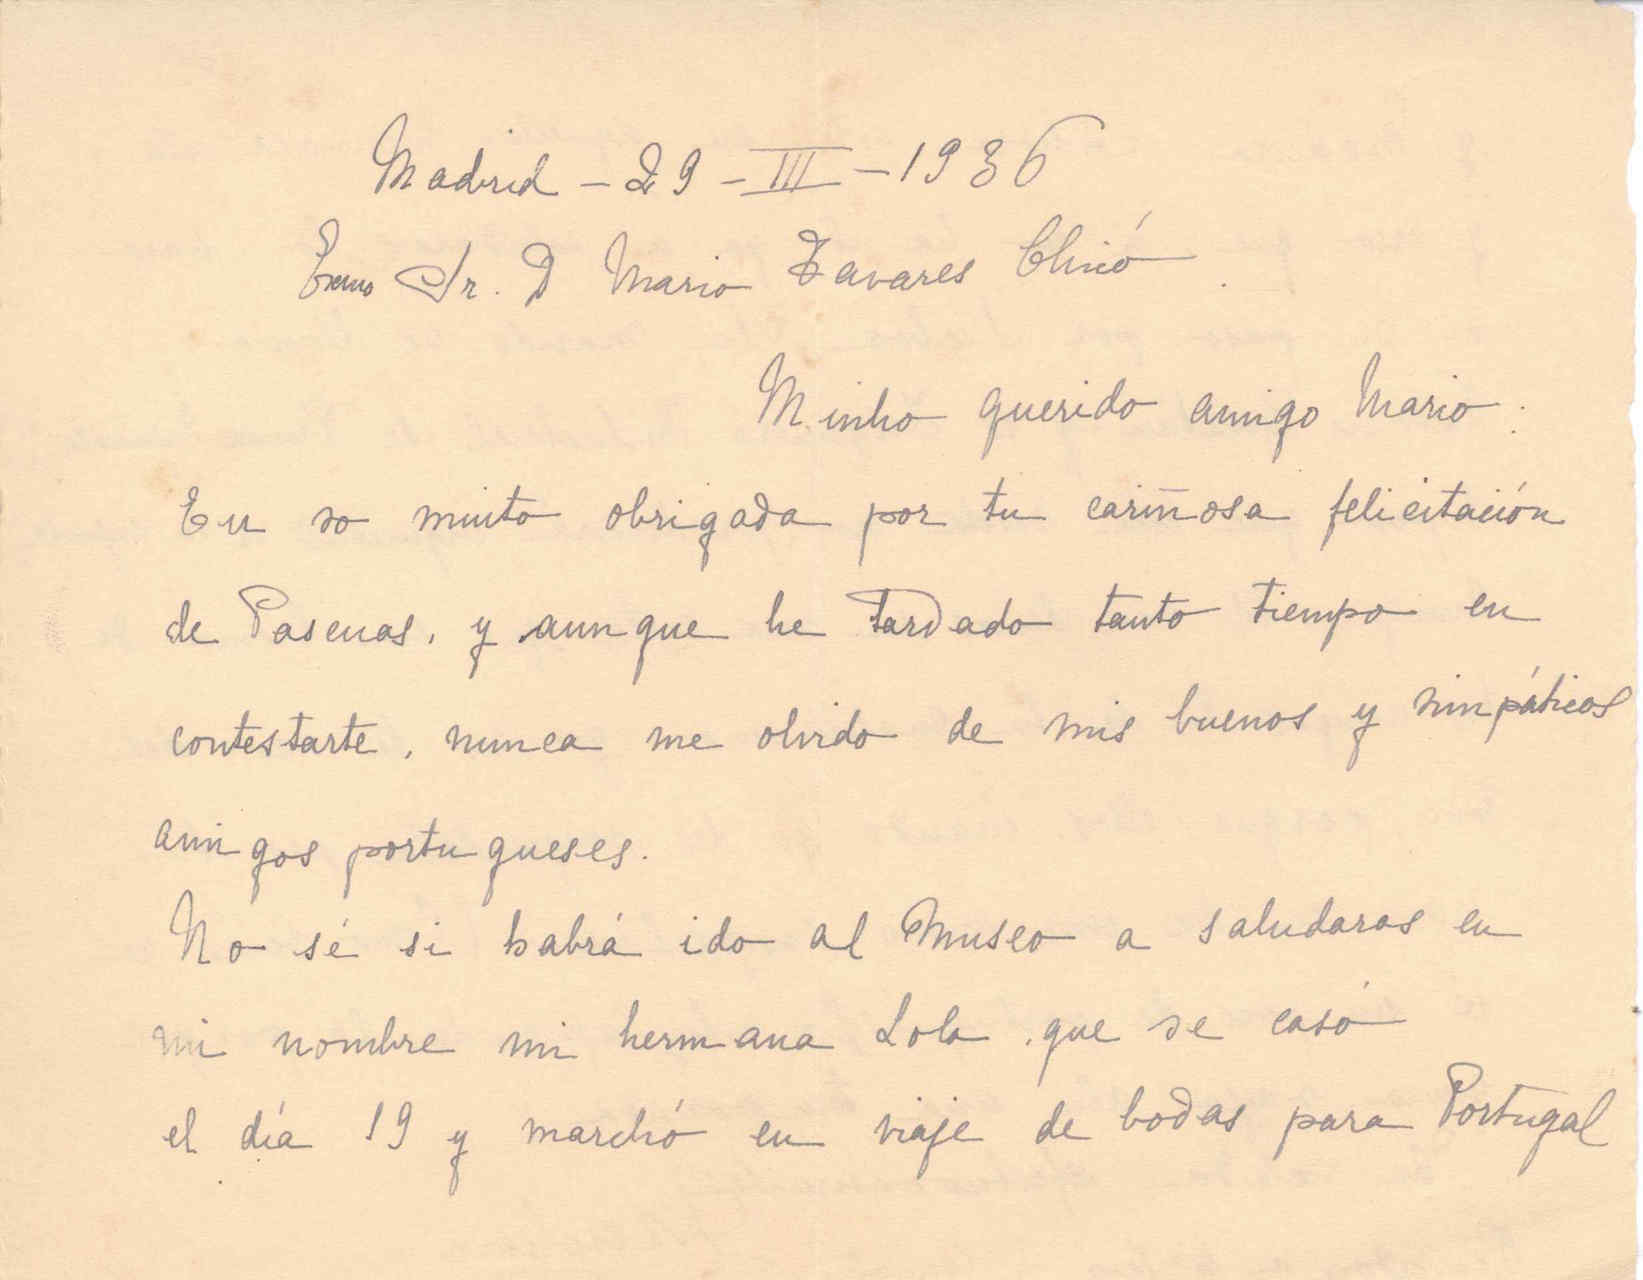 Madrid - 29 - III - 1936
Exmo Sr. D Mario Tavares Chicó.
Minho querido amigo Mario:
Eu so muito obrigada por tu cariñosa felicitación
de Pascuas, y aunque he tardado tanto tiempo en
contestarte, nunca me olvido de mis buenos y simpáticos
amigos portugueses.
No sé si habrá ido al Museo a saludaros en
mi nombre mi hermana Lola, que se casó
el día 19 y marchó en viaje de bodas para Portugal